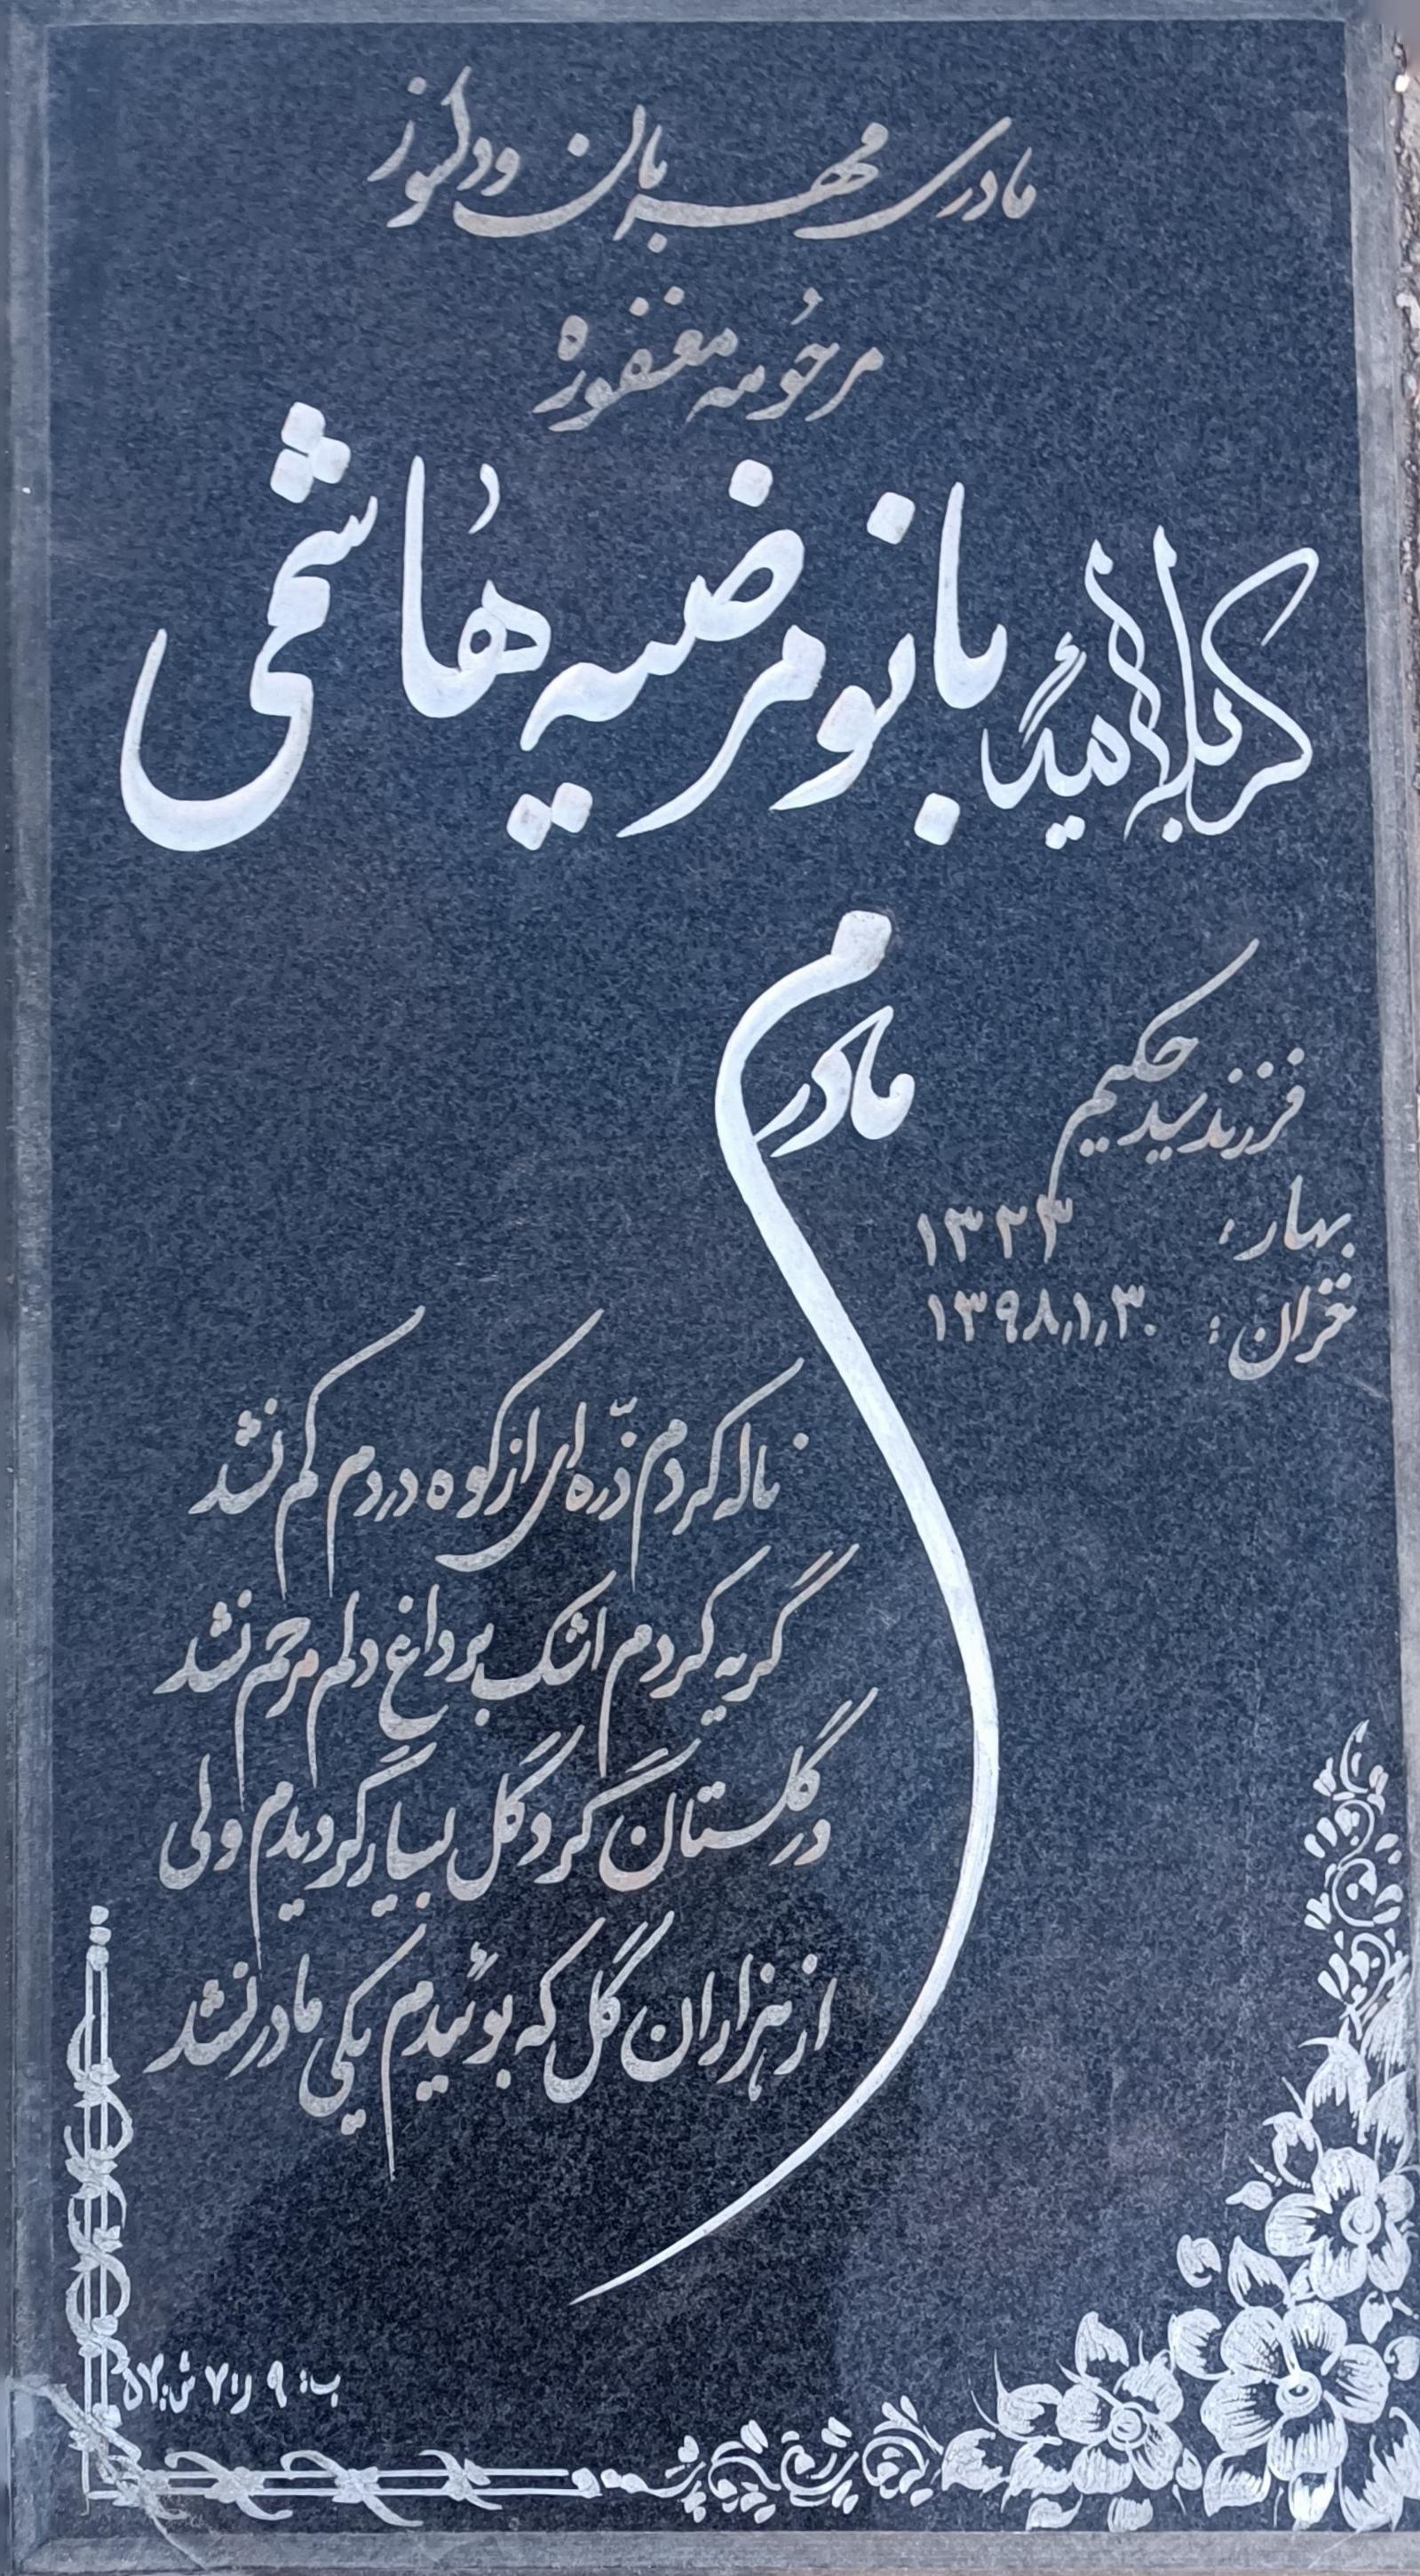 مادری مهربان و دلسوز
مرحومه مغفوره
کربلائیه بانو مرضیه هاشمی
مادرم
فرزند سید حکیم
بهار: ۱۳۲۳
خزان: ۱۳۹۸٫۱٫۳۰
ناله کردم ذره‌ای از کوه دردم کم نشد
گریه کردم اشک بر داغ دلم مرحم نشد
در گلستان گرد گل بسیار گردیدم ولی
از هزاران گل که بوئیدم یکی مادر نشد
ب: ۹ ر: ۷ ش: ۵۷